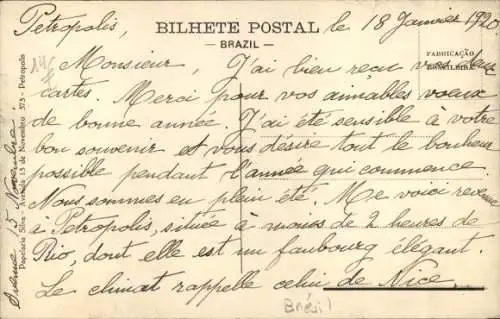 Petropolis, le 18 Janvier 1920
BILHETE POSTAL
— BRAZIL —
FABRICAÇÃO
BRASILEIRA
Monsieur, J'ai bien reçu vos deux
cartes. Merci pour vos aimables voeux
de bonne année. J'ai été sensible à votre
bon souvenir et vous désire tout le bonheur
possible pendant l'année qui commence.
Nous sommes en plein été. Me voici revenue
à Petropolis, située à moins de 2 heures de
Rio, dont elle est un faubourg élégant.
Le climat rappelle celui de Nice.
Brésil
Papelaria Silva - Avenida 15 de Novembro 573 - Petropolis
Avenue 15 Novembre